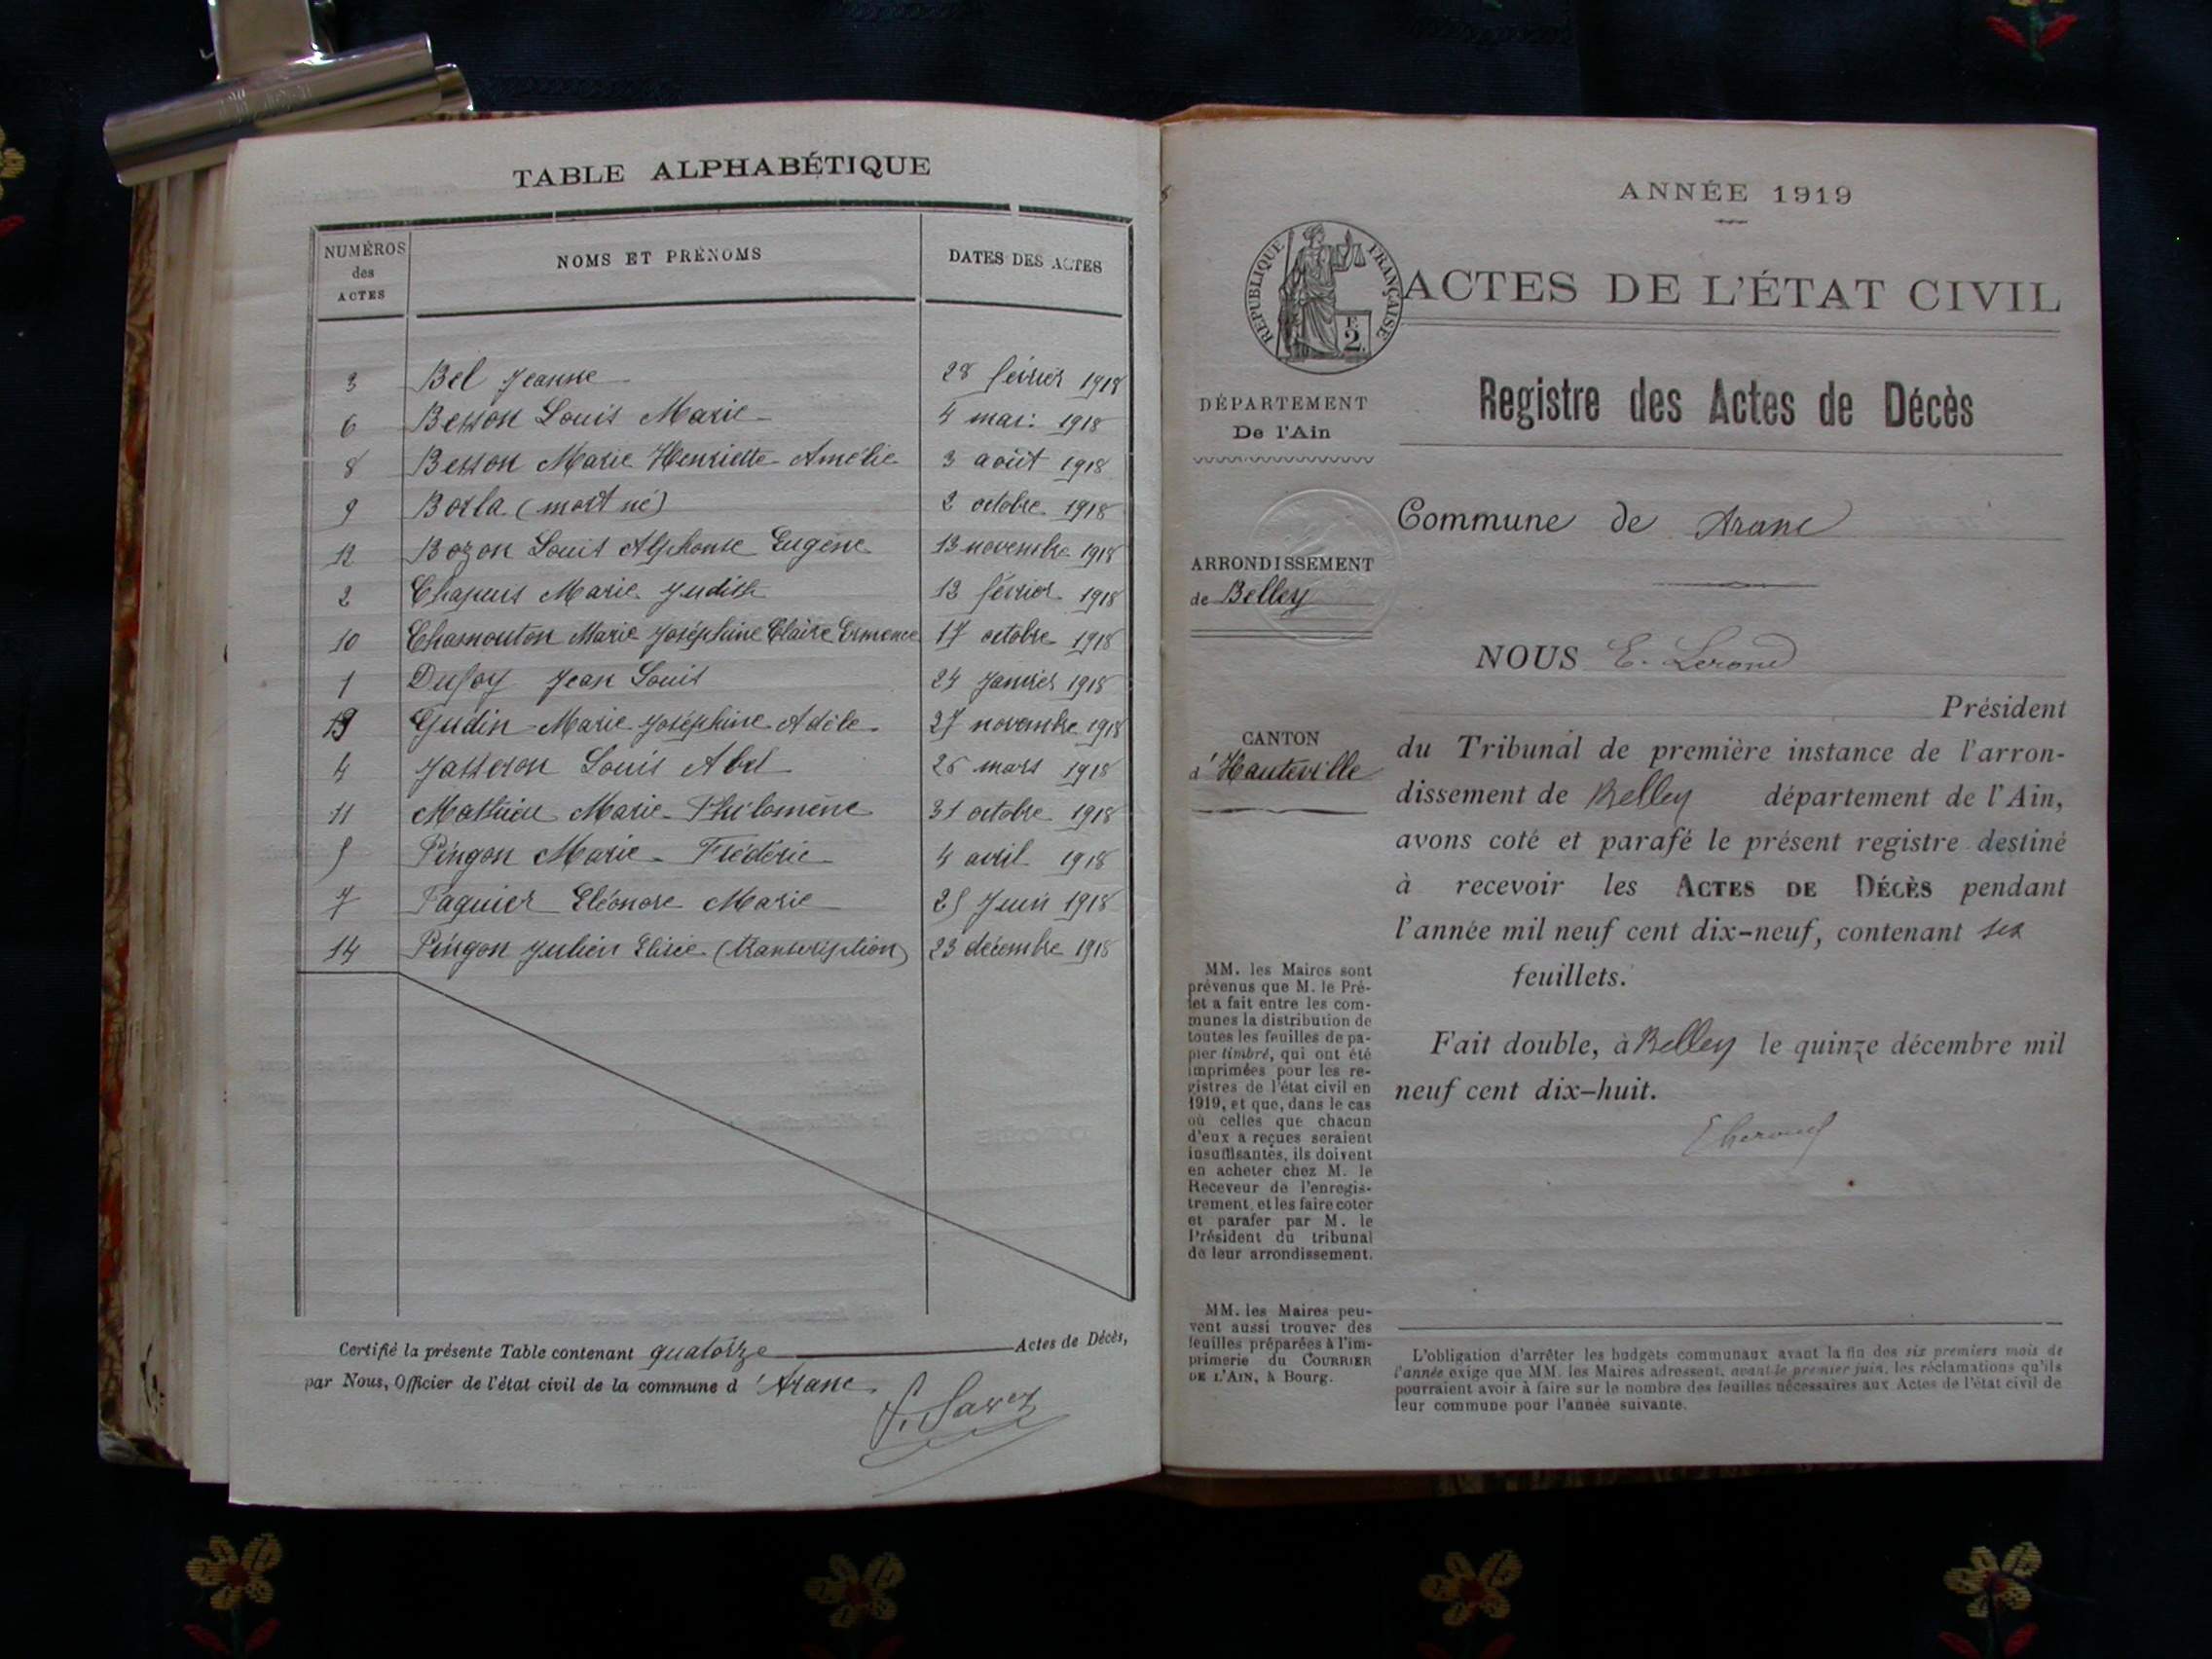 TABLE ALPHABÉTIQUE
NUMÉROS des ACTES
NOMS ET PRÉNOMS
DATES DES ACTES
3 Bel Jeanne 28 février 1918
6 Besson Louis Marie 4 mai 1918
8 Besson Marie Henriette Amélie 3 août 1918
9 Borla (mort né) 2 octobre 1918
12 Bozon Louis Alphonse Eugène 13 novembre 1918
2 Chapuis Marie Judith 13 février 1918
10 Chamouton Marie Joséphine Claire Ermence 17 octobre 1918
1 Dufay Jean Louis 24 Janvier 1918
13 Gudin Marie Joséphine Adèle 27 novembre 1918
4 Jasseron Louis Abel 26 mars 1918
11 Mathieu Marie Philomène 31 octobre 1918
5 Pingon Marie Frédéric 4 avril 1918
7 Paquier Eléonore Marie 25 Juin 1918
14 Pingon Julien Elisée (transcription) 23 décembre 1918
Certifié la présente Table contenant quatorze Actes de Décès,
par Nous, Officier de l'état civil de la commune d'Aranc
ANNÉE 1919
RÉPUBLIQUE FRANÇAISE
2
ACTES DE L'ÉTAT CIVIL
Registre des Actes de Décès
DÉPARTEMENT
De l'Ain
ARRONDISSEMENT
de Belley
CANTON
d'Hauteville
MM. les Maires sont
prévenus que M. le Pré-
fet a fait entre les com-
munes la distribution de
toutes les feuilles de pa-
pier timbré, qui ont été
imprimées pour les re-
gistres de l'état civil en
1919, et que, dans le cas
où celles que chacun
d'eux a reçues seraient
insuffisantes, ils doivent
en acheter chez M. le
Receveur de l'enregis-
trement, et les faire coter
et parafer par M. le
Président du tribunal
de leur arrondissement.
MM. les Maires peu-
vent aussi trouver des
feuilles préparées à l'im-
primerie du COURRIER
DE L'AIN, à Bourg.
Commune de Aranc
NOUS E.
Président
du Tribunal de première instance de l'arron-
dissement de Belley département de l'Ain,
avons coté et parafé le présent registre destiné
à recevoir les ACTES DE DÉCÈS pendant
l'année mil neuf cent dix-neuf, contenant six
feuillets.
Fait double, à Belley le quinze décembre mil
neuf cent dix-huit.
L'obligation d'arrêter les budgets communaux avant la fin des six premiers mois de
l'année exige que MM. les Maires adressent, avant le premier juin, les réclamations qu'ils
pourraient avoir à faire sur le nombre des feuilles nécessaires aux Actes de l'état civil de
leur commune pour l'année suivante.